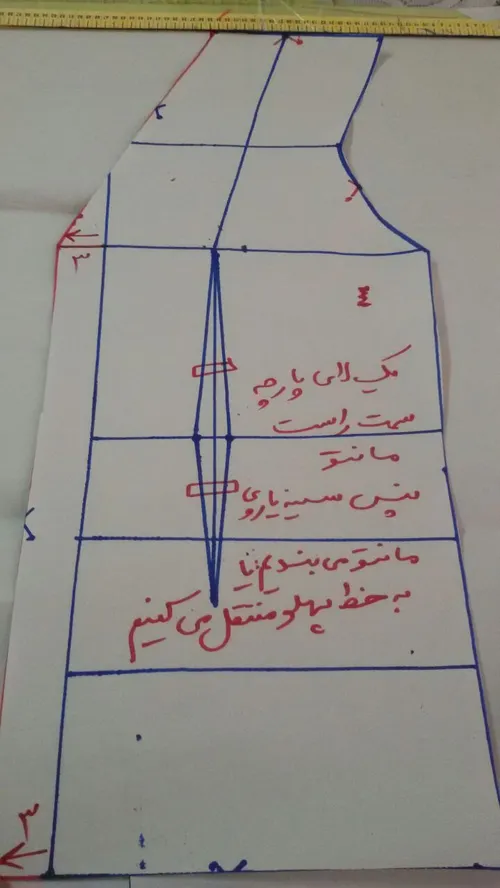 ۳
٤
یک لای پارچه
سمت راست
مانتو
پنس سینه یا روی
مانتو می بندیم یا
به خط پهلو منتقل می کنیم
۳